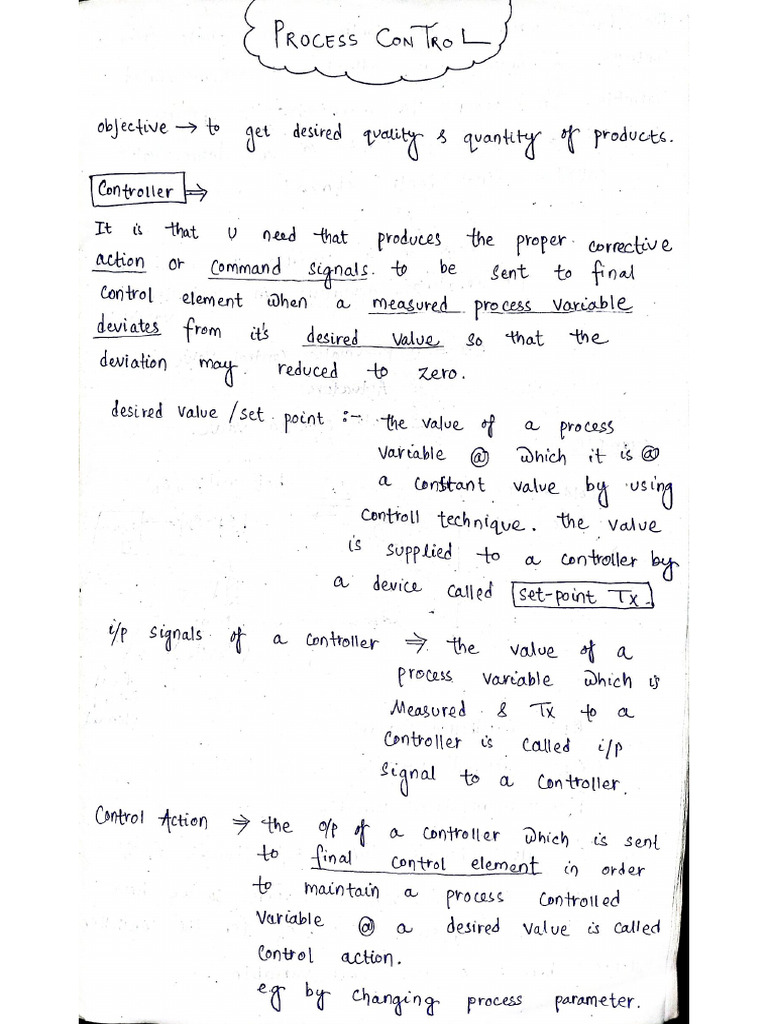 PROCESS CONTROL
objective → to get desired quality & quantity of products.
Controller ⇒
It is that U need that produces the proper corrective
action or command signals to be sent to final
control element when a measured process variable
deviates from it's desired value so that the
deviation may reduced to zero.
desired value / set point :- the value of a process
variable @ which it is @
a constant value by using
controll technique. the value
is supplied to a controller by
a device called set-point Tx.
i/p signals of a controller ⇒ the value of a
process variable which is
Measured & Tx to a
controller is called i/p
signal to a controller.
Control Action ⇒ the o/p of a controller which is sent
to final control element in order
to maintain a process controlled
variable @ a desired value is called
control action.
eg by changing process parameter.